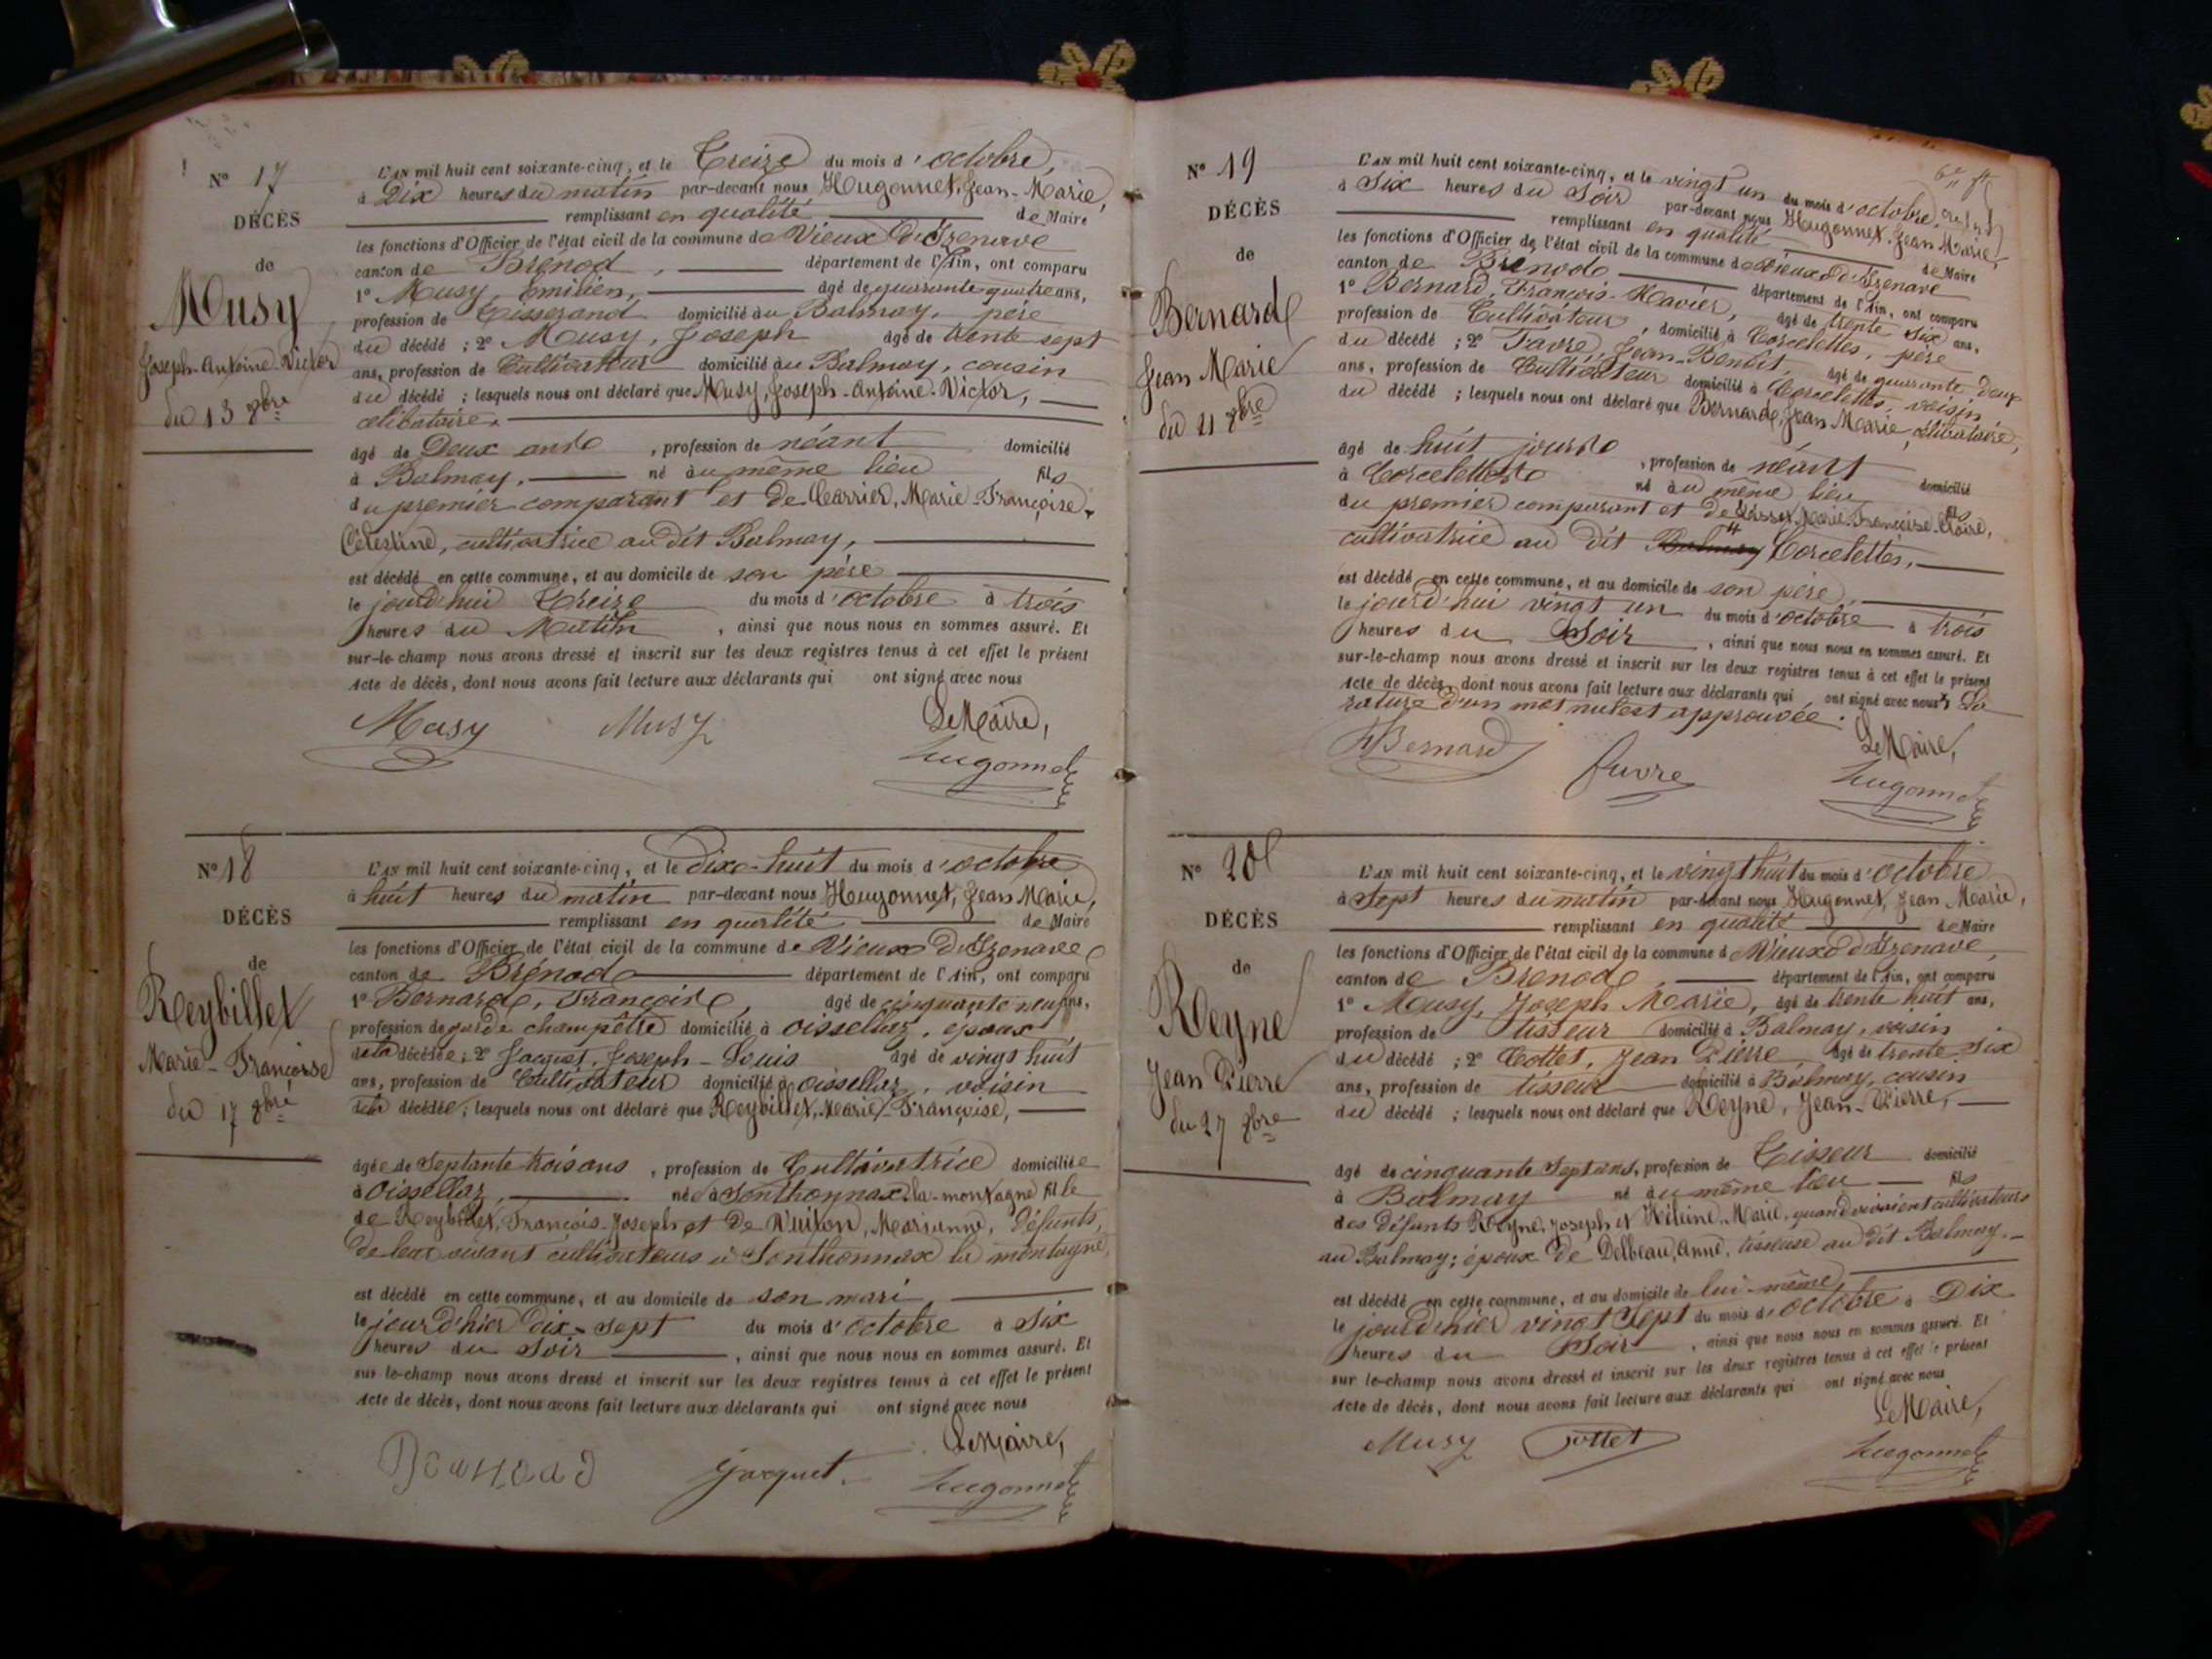 N° 17
DÉCÈS
de
Musy
Joseph-Antoine-Victor
du 13 8bre
L'AN mil huit cent soixante-cinq, et le Treize du mois d'octobre,
à Dix heures du matin par-devant nous Hugonnet, Jean-Marie,
remplissant en qualité de Maire
les fonctions d'Officier de l'état civil de la commune de Vieux d'Izenave
canton de Brénod, département de l'Ain, ont comparu
1° Musy, Emilien, âgé de quarante quatre ans,
profession de Tisserand domicilié au Balmay, père
du décédé ; 2° Musy, Joseph âgé de trente sept
ans, profession de Cultivateur domicilié au Balmay, cousin
du décédé ; lesquels nous ont déclaré que Musy, Joseph-Antoine-Victor,
célibataire,
âgé de Deux ans, profession de néant domicilié
à Balmay, né au même lieu fils
du premier comparant et de Carrier, Marie-Françoise-
Célestine, cultivatrice au dit Balmay,
est décédé en cette commune, et au domicile de son père
le jourd'hui Treize du mois d'octobre à trois
heures du Matin, ainsi que nous nous en sommes assuré. Et
sur-le-champ nous avons dressé et inscrit sur les deux registres tenus à cet effet le présent
Acte de décès, dont nous avons fait lecture aux déclarants qui ont signé avec nous
Musy Musy Le Maire,
Hugonnet
N° 18
DÉCÈS
de
Reybillet
Marie-Françoise
du 17 8bre
L'AN mil huit cent soixante-cinq, et le dix-huit du mois d'octobre
à huit heures du matin par-devant nous Hugonnet, Jean Marie,
remplissant en qualité de Maire
les fonctions d'Officier de l'état civil de la commune de Vieux d'Izenave
canton de Brénod département de l'Ain, ont comparu
1° Bernard, François, âgé de cinquante neuf ans,
profession de garde champêtre domicilié à Oissellaz, époux
de la décédée ; 2° Jacquet, Joseph-Louis âgé de vingt huit
ans, profession de Cultivateur domicilié à Oissellaz, voisin
de la décédée ; lesquels nous ont déclaré que Reybillet, Marie-Françoise,
âgée de Septante trois ans, profession de Cultivatrice domiciliée
à Oissellaz, née à Sonthonnax-la-montagne fille
de Reybillet, François-Joseph et de Vuiton, Marianne, défunts,
de leur vivant cultivateurs à Sonthonnax la montagne,
est décédé en cette commune, et au domicile de son mari,
le jour d'hier dix-sept du mois d'octobre à Six
heures du Soir, ainsi que nous nous en sommes assuré. Et
sur-le-champ nous avons dressé et inscrit sur les deux registres tenus à cet effet le présent
Acte de décès, dont nous avons fait lecture aux déclarants qui ont signé avec nous
Bernard Jacquet. Le Maire,
Hugonnet
N° 19
DÉCÈS
de
Bernard
Jean Marie
du 21 8bre
L'AN mil huit cent soixante-cinq, et le vingt un du mois d'octobre,
à Six heures du Soir par-devant nous Hugonnet, Jean Marie,
remplissant en qualité de Maire
les fonctions d'Officier de l'état civil de la commune de Vieux d'Izenave
canton de Brénod département de l'Ain, ont comparu
1° Bernard, François-Xavier, âgé de trente six ans,
profession de Cultivateur, domicilié à Corcelettes, père
du décédé ; 2° Favre, Jean-Benoît, âgé de quarante deux
ans, profession de Cultivateur domicilié à Corcelettes, voisin
du décédé ; lesquels nous ont déclaré que Bernard, Jean Marie, célibataire,
âgé de huit jours, profession de néant domicilié
à Corcelettes né au même lieu fils
du premier comparant et de Marie-Françoise-Claire,
cultivatrice au dit Balmay Corcelettes,
est décédé en cette commune, et au domicile de son père,
le jourd'hui vingt un du mois d'octobre à trois
heures du Soir, ainsi que nous nous en sommes assuré. Et
sur-le-champ nous avons dressé et inscrit sur les deux registres tenus à cet effet le présent
Acte de décès, dont nous avons fait lecture aux déclarants qui ont signé avec nous La
rature d'un mot nul est approuvée.
Bernard Favre Le Maire,
Hugonnet
N° 20
DÉCÈS
de
Reyne
Jean Pierre
du 27 8bre
L'AN mil huit cent soixante-cinq, et le vingt huit du mois d'octobre
à Sept heures du matin par-devant nous Hugonnet, Jean Marie,
remplissant en qualité de Maire
les fonctions d'Officier de l'état civil de la commune de Vieux d'Izenave,
canton de Brénod, département de l'Ain, ont comparu
1° Musy, Joseph Marie, âgé de trente huit ans,
profession de tisseur domicilié à Balmay, voisin
du décédé ; 2° Cottet, Jean Pierre âgé de trente six
ans, profession de tisseur domicilié à Balmay, cousin
du décédé ; lesquels nous ont déclaré que Reyne, Jean-Pierre,
âgé de cinquante Sept ans, profession de Tisseur domicilié
à Balmay né au même lieu fils
des défunts Reyne, Joseph et Marie, quand vivaient cultivateurs
au Balmay ; époux de Delbeau, Anne, tisseuse au dit Balmay.
est décédé en cette commune, et au domicile de lui-même,
le jour d'hier vingt Sept du mois d'octobre à Dix
heures du Soir, ainsi que nous nous en sommes assuré. Et
sur le-champ nous avons dressé et inscrit sur les deux registres tenus à cet effet le présent
Acte de décès, dont nous avons fait lecture aux déclarants qui ont signé avec nous
Musy Cottet Le Maire,
Hugonnet